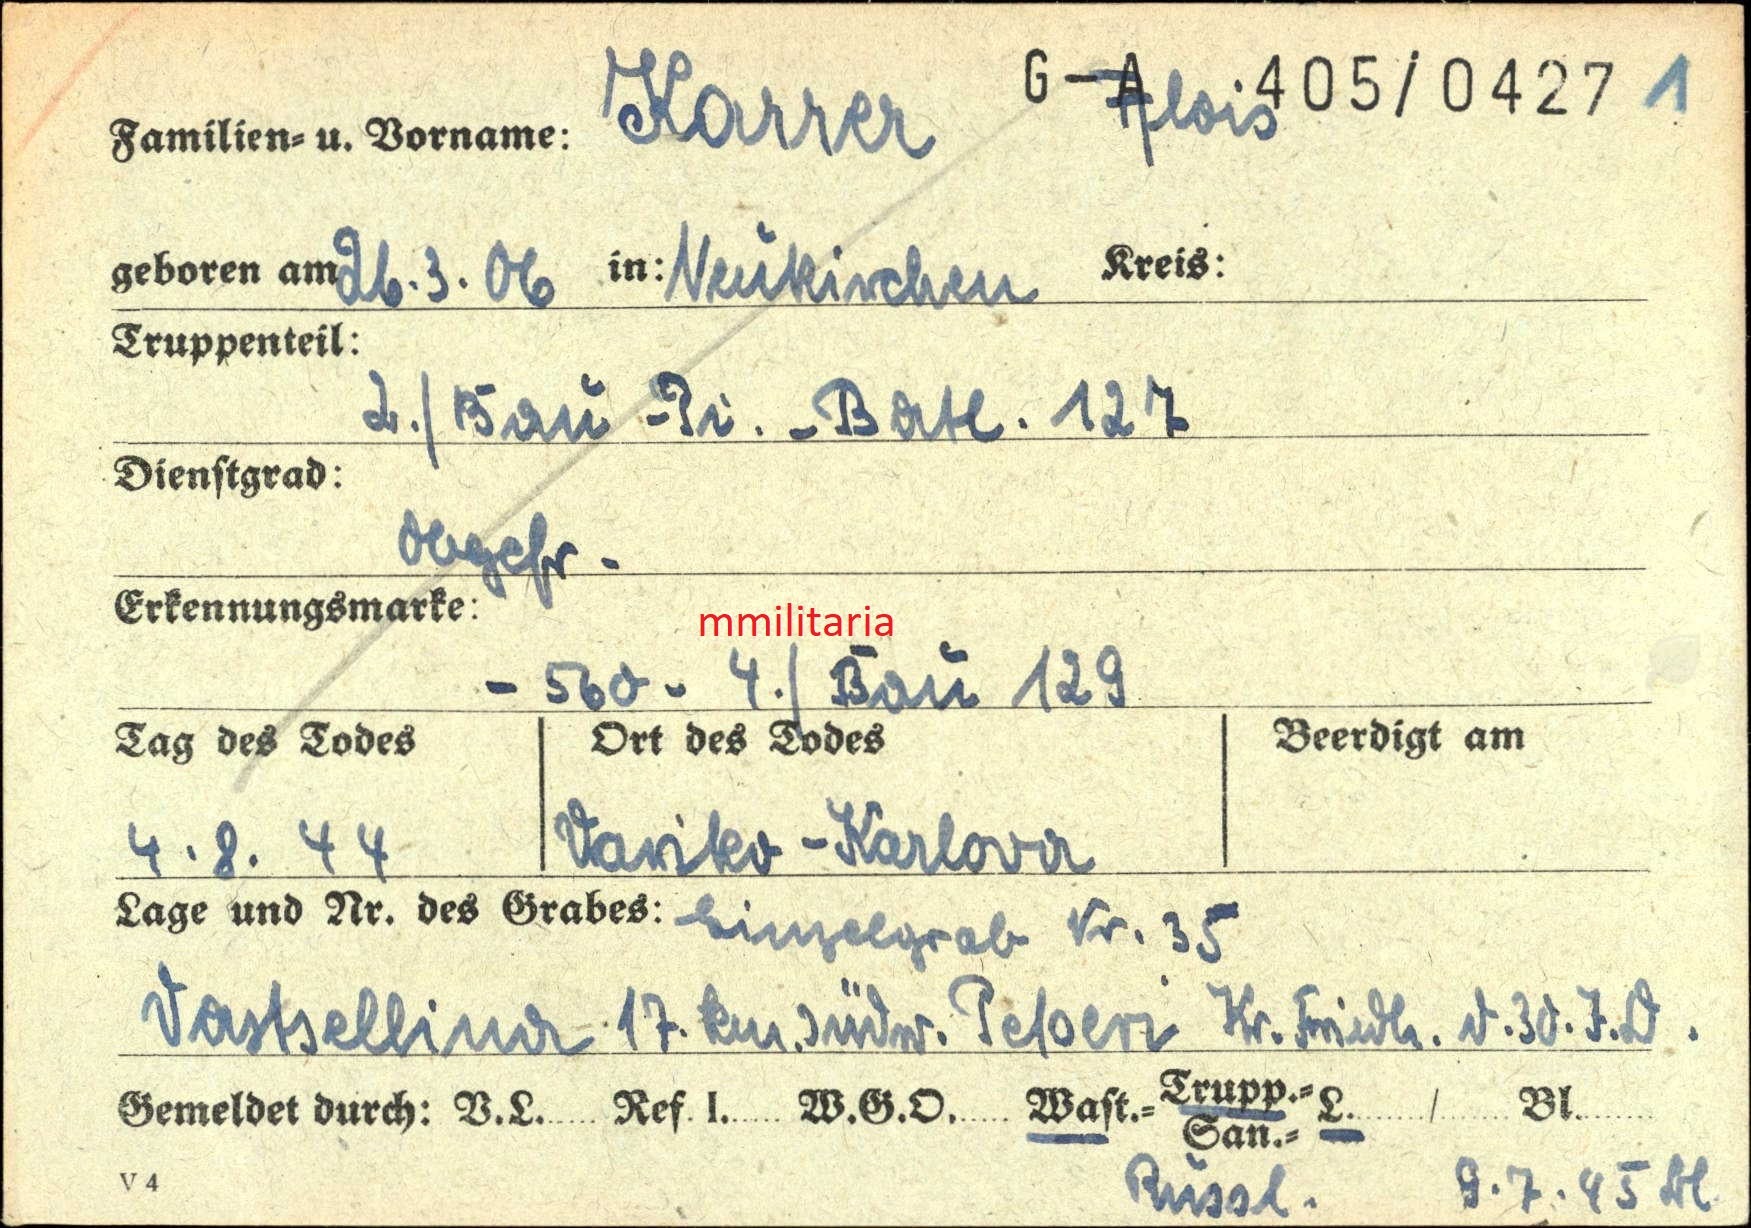 G-A 405/0427 1
Familien- u. Vorname: Karrer Alois
geboren am 26.3.06 in: Neukirchen Kreis:
Truppenteil:
2./Bau-Pi.-Batl. 127
Dienstgrad:
Obgefr.
Erkennungsmarke:
mmilitaria
- 560 - 4./Bau 129
Tag des Todes Ort des Todes Beerdigt am
4.8.44 -Karlova
Lage und Nr. des Grabes: Einzelgrab Nr. 35
Vastsellina 17. km. südw. Petseri Kr. Friedh. d. 30. J.D.
Gemeldet durch: V.L. Ref. I. W.G.O. Wast.- Trupp.- San.- L. / Bl.
V 4 Russl. 9.7.45